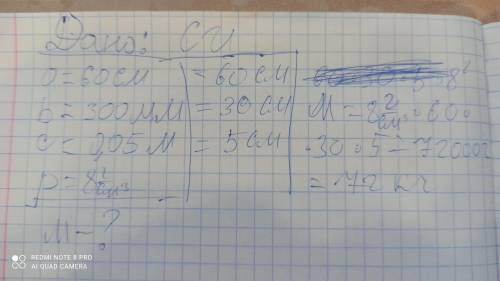 Дано: СИ
a=60см =60см
b=300мм =30см
c=0,05м =5см
p=8г/см³
M-?
M=8г/см³·60·
·30·5=72000г
=72кг
REDMI NOTE 8 PRO
AI QUAD CAMERA